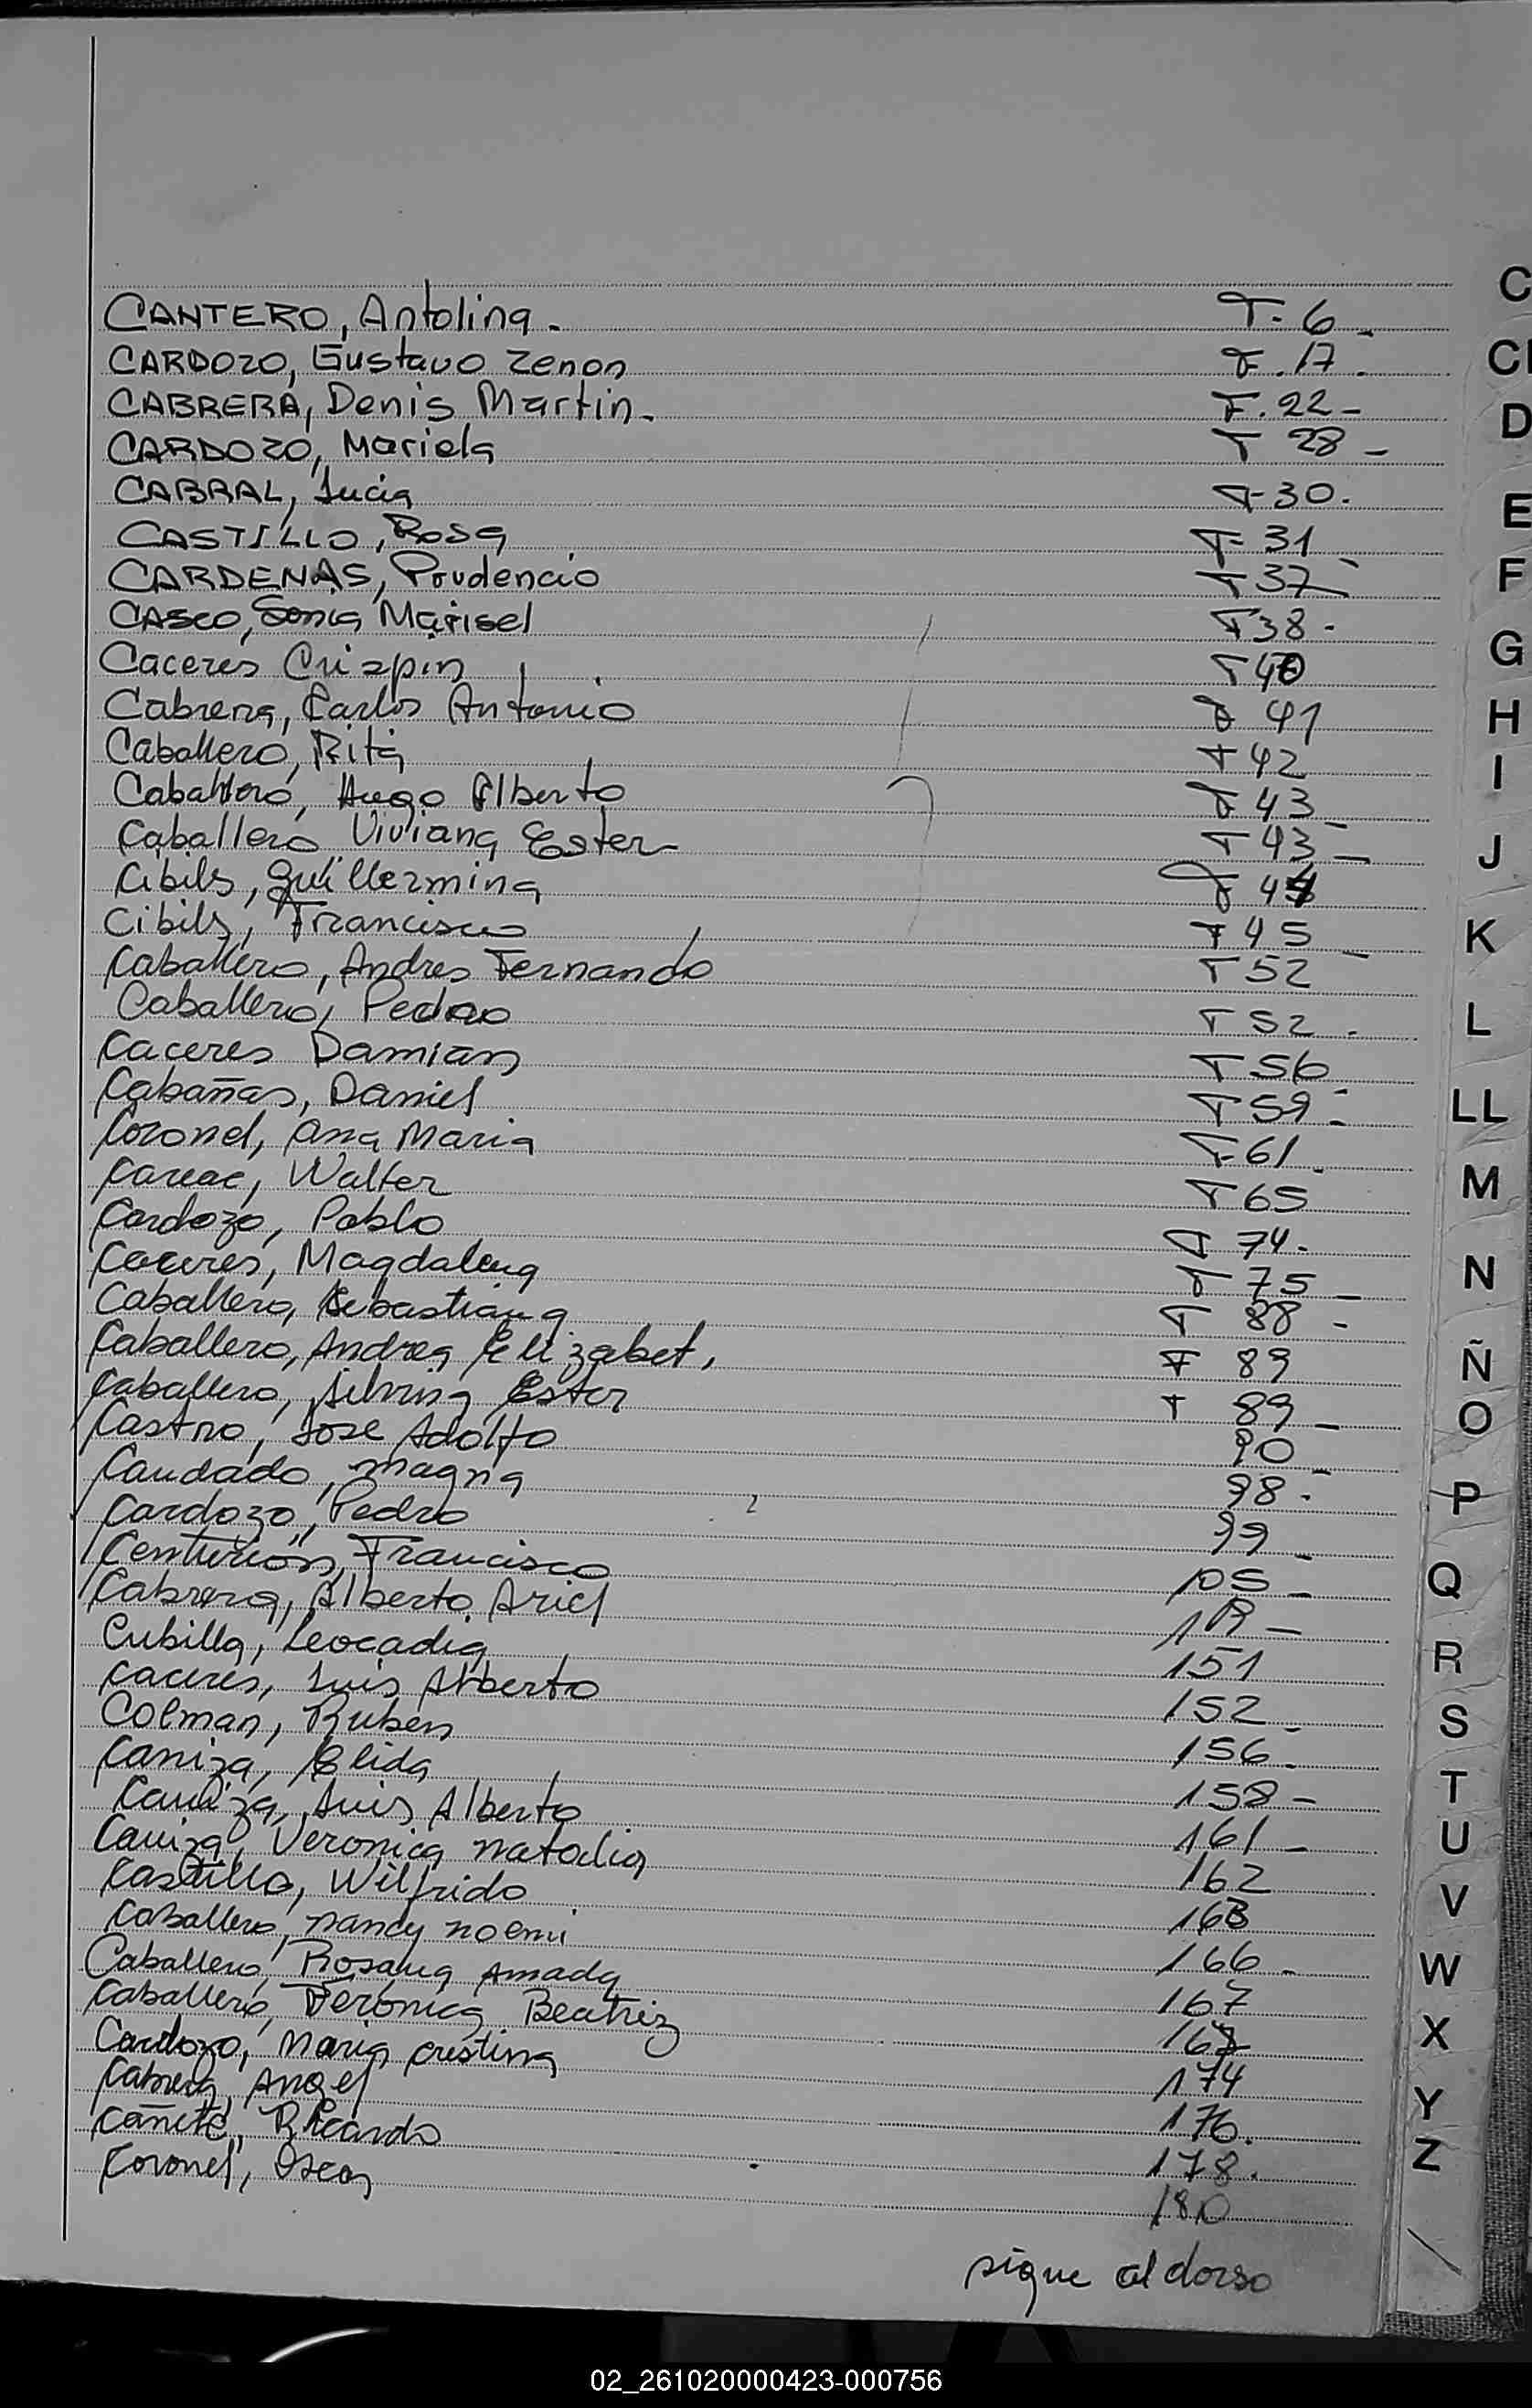 CANTERO, Antolina. T. 6.
CARDOZO, Gustavo Zenon F. 17.
CABRERA, Denis Martin. F. 22-
CARDOZO, Mariela F 28-
CABRAL, Lucia F 30.
CASTILLO, Rosa F 31
CARDENAS, Prudencio F 37-
CASCO, Sonia Marisel F 38-
Caceres Crispin F 40
Cabrera, Carlos Antonio F 41
Caballero, Rita F 42
Caballero, Hugo Alberto F 43
Caballero Viviana Ester F 43-
Cibils, Guillermina F 44
Cibils, Francisco F 45
Caballero, Andres Fernando F 52-
Caballero, Pedro F 52.
Caceres Damian F 56
Cabañas, Daniel F 59-
Coronel, Ana Maria F 61.
Careac, Walter F 65
Cardozo, Pablo F 74.
Caceres, Magdalena F 75-
Caballero, Sebastiana F 88-
Caballero, Andrea Elizabet, F 89
Caballero, Silvina Ester F 89-
Castro, Jose Adolfo 90
Caudado, Magna 98.
Cardozo, Pedro 99
Centurion, Francisco 105-
Cabrera, Alberto Ariel
Cubilla, Leocadia 151
Caceres, Luis Alberto 152
Colman, Ruben 156-
Caniza, Elida 158-
Caniza, Luis Alberto 161-
Caniza, Veronica Natalia 162
Castillo, Wilfrido 163
Caballero, Nancy Noemi 166-
Caballero, Rosana Amada 167
Caballero, Veronica Beatriz
Cardozo, Maria Cristina 174
Cabrera, Angel 176.
Cañete, Ricardo 178.
Coronel, Oscar 180
sigue al dorso
C
CH
D
E
F
G
H
I
J
K
L
LL
M
N
Ñ
O
P
Q
R
S
T
U
V
W
X
Y
Z
02_261020000423-000756